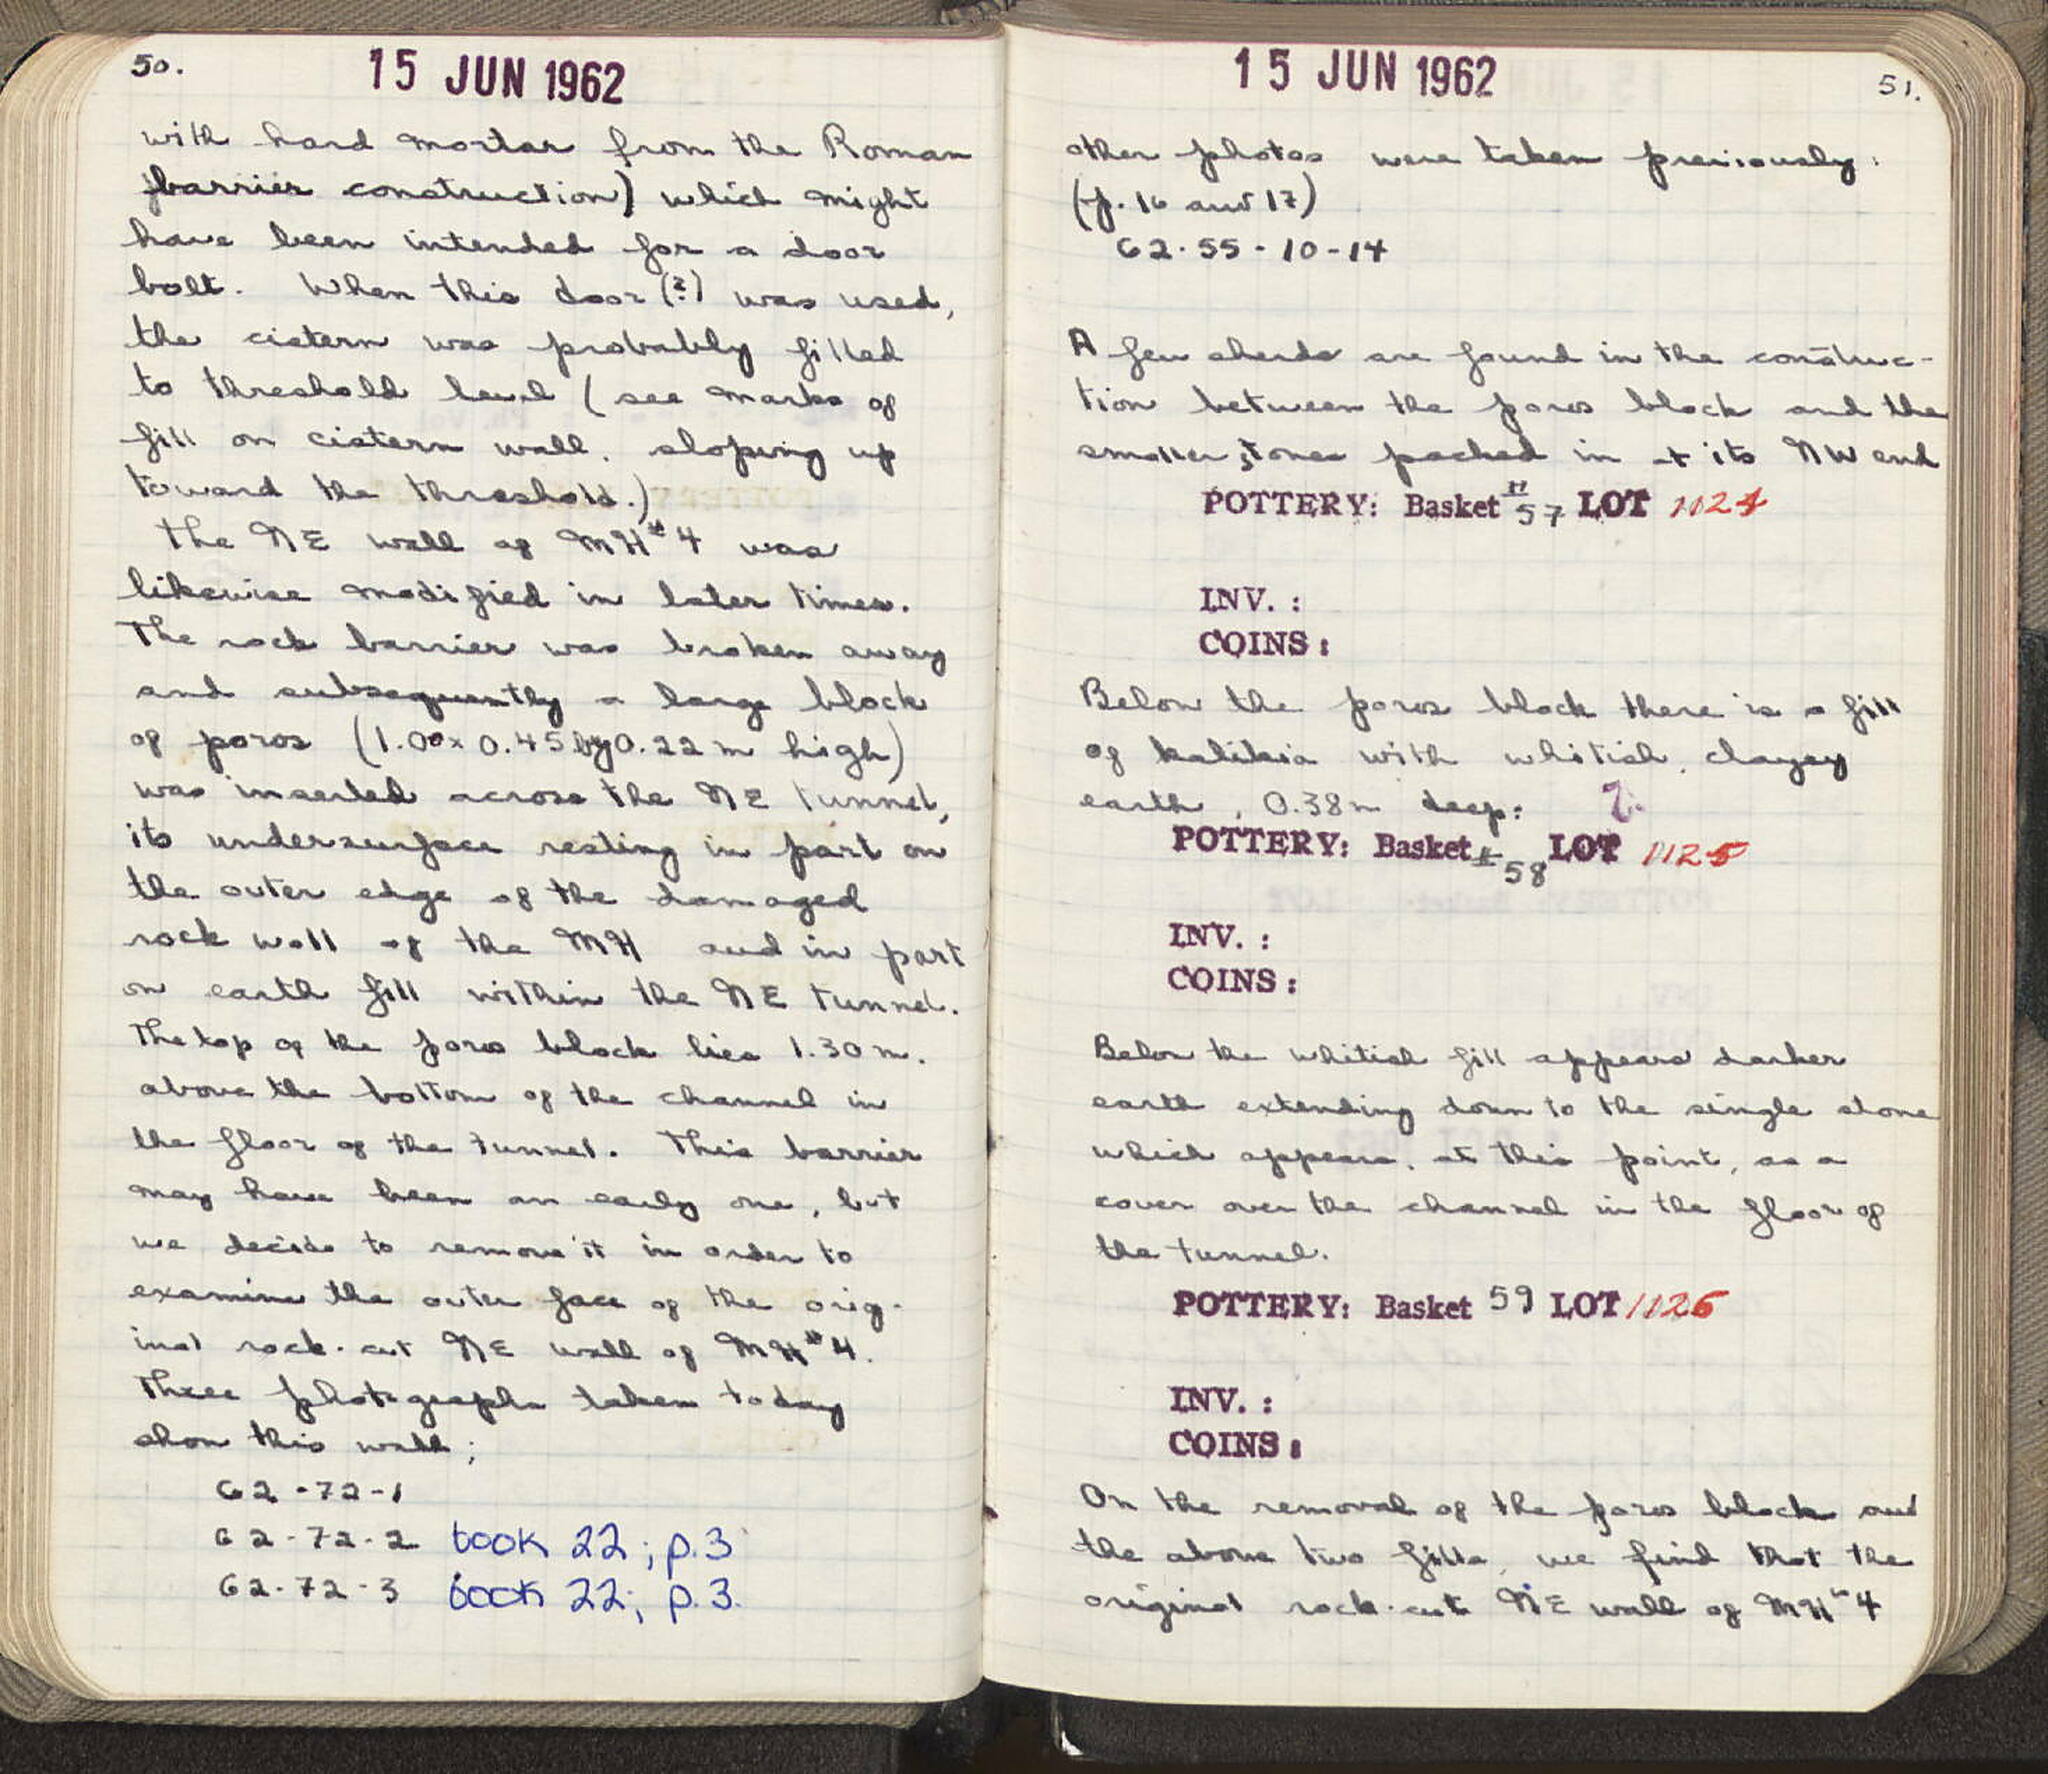 50.
15 JUN 1962
with hard mortar from the Roman
barrier construction) which might
have been intended for a door
bolt. When this door (?) was used,
the cistern was probably filled
to threshold level (see marks of
fill on cistern wall, sloping up
toward the threshold.)
The NE wall of MH#4 was
likewise modified in later times.
The rock barrier was broken away
and subsequently a large block
of poros (1.00 x 0.45 by 0.22 m high)
was inserted across the NE tunnel,
its undersurface resting in part on
the outer edge of the damaged
rock wall of the MH and in part
on earth fill within the NE tunnel.
The top of the poros block lies 1.30 m.
above the bottom of the channel in
the floor of the tunnel. This barrier
may have been an early one, but
we decide to remove it in order to
examine the outer face of the orig-
inal rock-cut NE wall of MH#4.
Three photographs taken today
show this wall;
62-72-1
62-72-2 book 22; p.3
62-72-3 book 22; p.3.
15 JUN 1962
51.
other photos were taken previously:
(p. 16 and 17)
62-55-10-14
A few sherds are found in the construc-
tion between the poros block and the
smaller stones packed in at its NW end
POTTERY: Basket # 57 LOT 1124
INV. :
COINS :
Below the poros block there is a fill
of kalikia with whitish, clayey
earth, 0.38 m deep:
POTTERY: Basket # 58 LOT 1125
INV. :
COINS :
Below the whitish fill appears darker
earth extending down to the single stone
which appears, at this point, as a
cover over the channel in the floor of
the tunnel.
POTTERY: Basket 59 LOT 1126
INV. :
COINS :
On the removal of the poros block and
the above two fills, we find that the
original rock-cut NE wall of MH#4